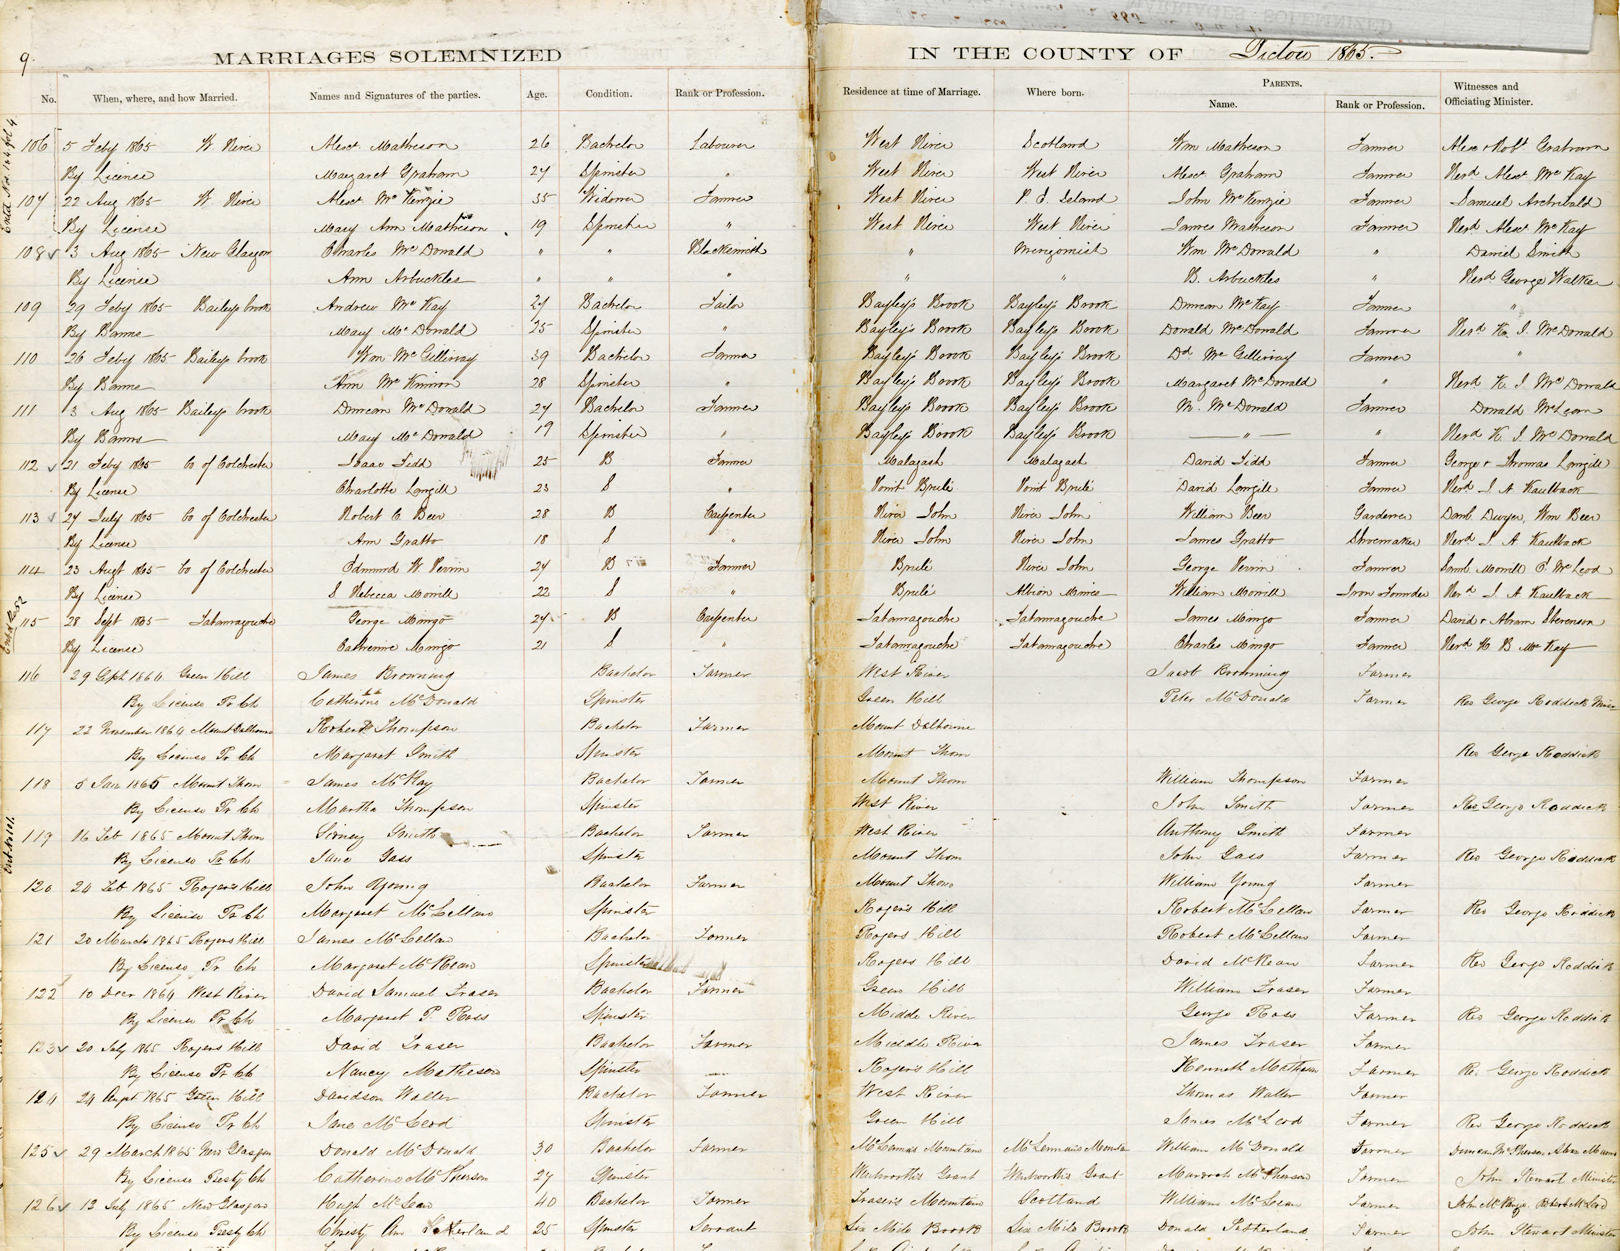 9.
MARRIAGES SOLEMNIZED IN THE COUNTY OF Pictou 1865.
No. When, where, and how Married. Names and Signatures of the parties. Age. Condition. Rank or Profession. Residence at time of Marriage. Where born. PARENTS. Witnesses and
Name. Rank or Profession. Officiating Minister.
106 5 Feby 1865 W. River Alexr Matheson 26 Bachelor Labourer West River Scotland Wm Matheson Farmer Alexr & Robt Graham
By License Margaret Graham 24 Spinster " West River West River Alexr Graham Farmer Revd Alexr McKay
107 22 Aug 1865 W River Alexr McKenzie 35 Widower Farmer West River P. E. Island John McKenzie Farmer Samuel Archibald
By License Mary Ann Matheson 19 Spinster " West River West River James Matheson Farmer Revd Alexr McKay
108 3 Aug 1865 New Glasgow Charles McDonald " " Blacksmith " Merigomish Wm McDonald " David Smith
By License Ann Arbuckles " " " " B. Arbuckles " Revd George Walker
109 29 Feby 1865 Baileys brook Andrew McKay 27 Bachelor Tailor Bayley's Brook Bayley's Brook Duncan McKay Farmer "
By Banns Mary McDonald 25 Spinster " Bayley's Brook Bayley's Brook Donald McDonald Farmer Revd K. J. McDonald
110 26 Feby 1865 Baileys brook Wm McGillivray 39 Bachelor Farmer Bayley's Brook Bayley's Brook Dd McGillivray Farmer "
By Banns Ann McKinnon 28 Spinster Bayley's Brook Bayley's Brook Margaret McDonald " Revd K. J. McDonald
111 3 Aug 1865 Baileys brook Duncan McDonald 27 Bachelor Farmer Bayley's Brook Bayley's Brook M. McDonald Farmer Donald McLean
By Banns Mary McDonald 19 Spinster " Bayley's Brook Bayley's Brook — " — " Revd K. J. McDonald
112 21 Feby 1865 Co of Colchester Isaac Tedd 25 B Farmer Malagash Malagash David Tidd Farmer George & Thomas Langill
By License Charlotte Langill 23 S " Point Brulé Point Brulé David Langill Farmer Revd J. A Kaulback
113 24 July 1865 Co of Colchester Robert C. Beer 28 B Carpenter River John River John William Beer Gardener Danl Dwyer, Wm Beer
By License Ann Gratto 18 S " River John River John James Gratto Shoemaker Revd J. A Kaulback
114 23 Augt 1865 Co of Colchester Edmund W. Perrin 24 B Farmer Brulé River John George Perrin Farmer Saml Morrill P. McLeod
By License S Rebecca Morrill 22 S " Brulé Albion Mines William Morrill Iron Founder Revd J. A Kaulback
115 28 Sept 1865 Tatamagouche George Mingo 24 B Carpenter Tatamagouche Tatamagouche James Mingo Farmer David & Abram Stevenson
By License Catherine Mingo 21 S " Tatamagouche Tatamagouche Charles Mingo Farmer Revd H B McKay
116 29 Sept 1864 Green Hill James Browning Bachelor Farmer West River Jacob Browning Farmer
By License Pr Ch Catherine McDonald Spinster Green Hill Peter McDonald Farmer Rev George Roddick
117 22 November 1864 Mount Dalhousie Robert Thompson Bachelor Farmer Mount Dalhousie
By License Pr Ch Margaret Smith Spinster Mount Thom Rev George Roddick
118 5 Jan 1865 Mount Thom James McKay Bachelor Farmer Mount Thom William Thompson Farmer
By License Pr Ch Martha Thompson Spinster West River John Smith Farmer Rev George Roddick
119 16 Feb 1865 Mount Thom Smith Bachelor Farmer West River Anthony Smith Farmer
By License Pr Ch Jane Gass Spinster Mount Thom John Gass Farmer Rev George Roddick
120 24 Feb 1865 Rogers Hill John Young Bachelor Farmer Mount Thom William Young Farmer
By License Pr Ch Margaret McLellan Spinster Rogers Hill Robert McLellan Farmer Rev George Roddick
121 20 March 1865 Rogers Hill James McLellan Bachelor Farmer Rogers Hill Robert McLellan Farmer
By License Pr Ch Margaret McKean Spinster Rogers Hill David McKean Farmer Rev George Roddick
122 10 Decr 1864 West River David Samuel Fraser Bachelor Farmer Green Hill William Fraser Farmer
By License Pr Ch Margaret P. Ross Spinster Middle River George Ross Farmer Rev George Roddick
123 20 July 1865 Rogers Hill David Fraser Bachelor Farmer Middle River James Fraser Farmer
By License Pr Ch Nancy Matheson Spinster — Rogers Hill Kenneth Matheson Farmer Rev George Roddick
124 24 Augt 1865 Green Hill Davidson Waller Bachelor Farmer West River Thomas Waller Farmer
By License Pr Ch Jane McLeod Spinster Green Hill James McLeod Farmer Rev George Roddick
125 29 March 1865 New Glasgow Donald McDonald 30 Bachelor Farmer McLennans Mountain McLennans Mountain William McDonald Farmer Duncan McPherson
By License Presty Ch Catherine McPherson 27 Spinster Wentworth's Grant Wentworth's Grant McPherson Farmer John Stewart Minister
126 13 July 1865 New Glasgow Hugh McLean 40 Bachelor Farmer Frasers Mountain Scotland William McLean Farmer
By License Presty Ch Christy Ann Sutherland 25 Spinster Servant Six Mile Brook Six Mile Brook Donald Sutherland Farmer John Stewart Minister